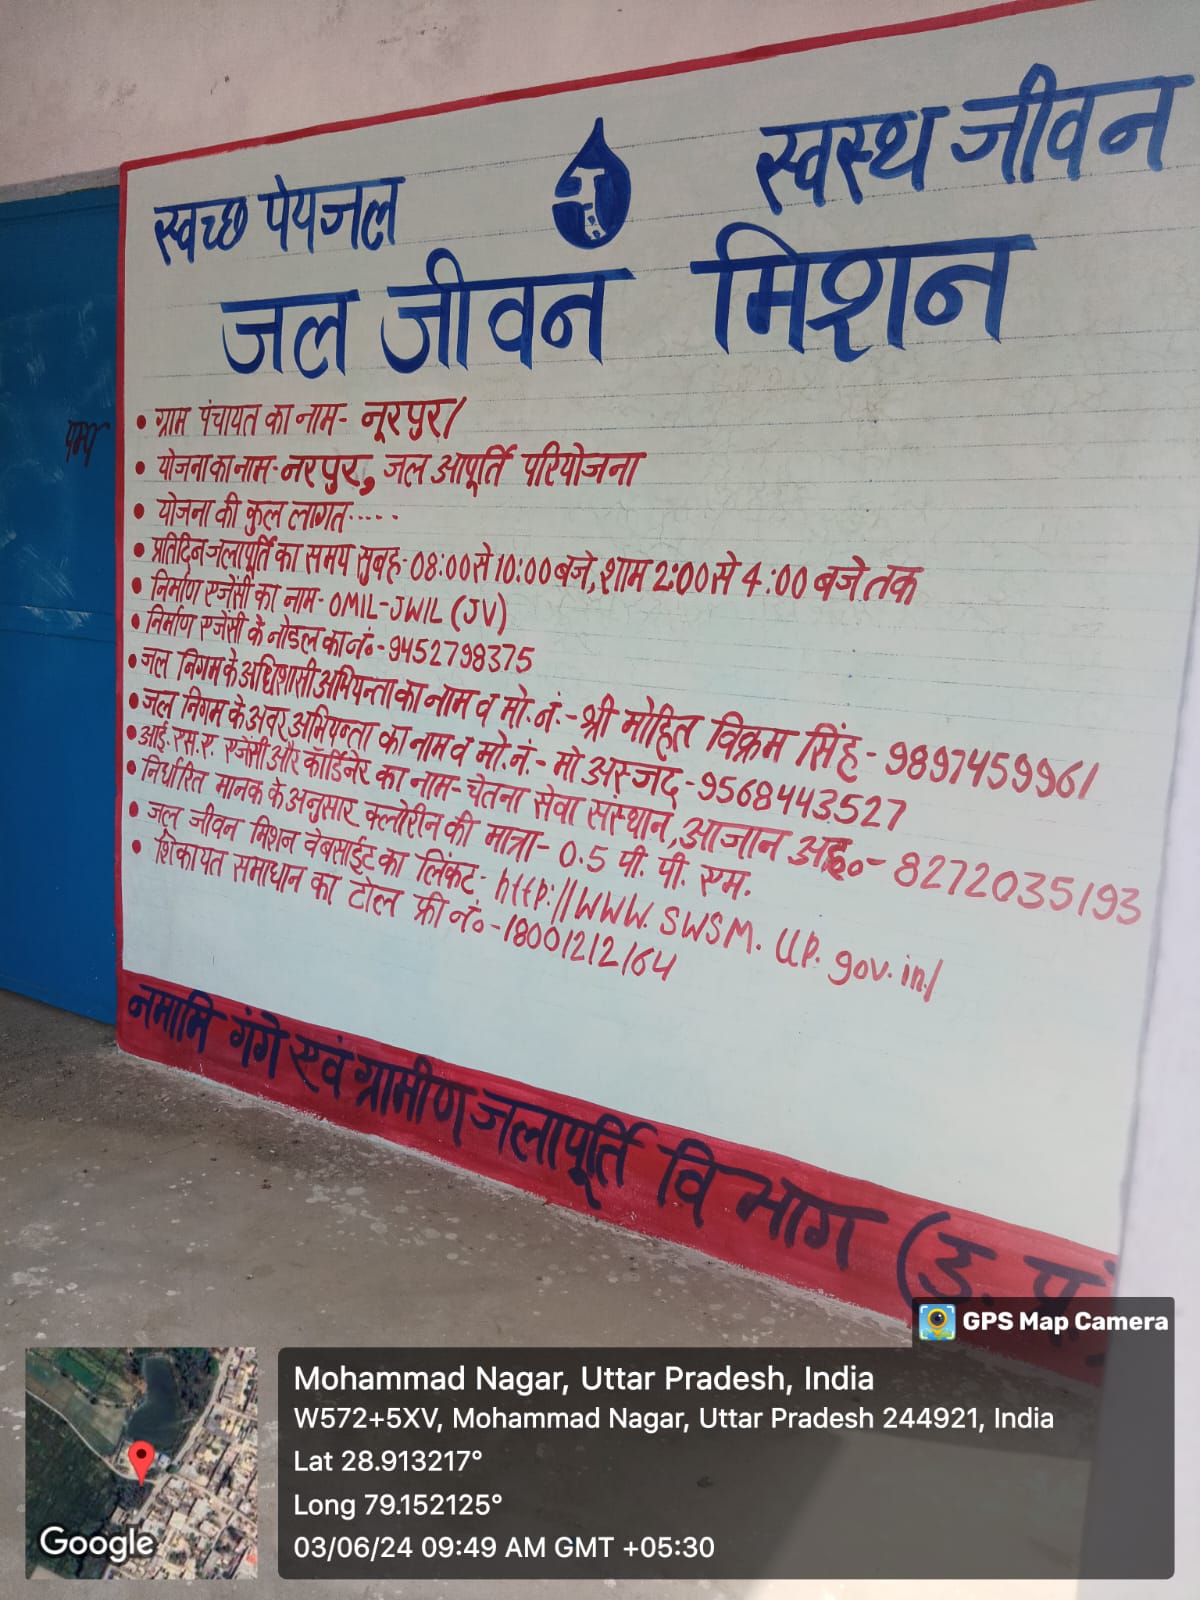 स्वच्छ पेयजल
स्वस्थ जीवन
जल जीवन मिशन
पम्प
• ग्राम पंचायत का नाम- नूरपुर/
• योजना का नाम- नरपुर, जल आपूर्ति परियोजना
• योजना की कुल लागत.....
• प्रतिदिन जलापूर्ति का समय सुबह- 08:00 से 10:00 बजे, शाम 2:00 से 4:00 बजे तक
• निर्माण एजेंसी का नाम- OMIL-JWIL (JV)
• निर्माण एजेंसी के नोडल का नं०- 9452798375
• जल निगम के अधिशासी अभियन्ता का नाम व मो.नं.- श्री मोहित विक्रम सिंह- 9897459961
• जल निगम के अवर अभियन्ता का नाम व मो.नं.- मो अस्जद- 9568443527
• आई.एस.ए. एजेंसी और कॉर्डिनेर का नाम- चेतना सेवा संस्थान, आजान अह०- 8272035193
• निर्धारित मानक के अनुसार क्लोरीन की मात्रा- 0.5 पी. पी. एम.
• जल जीवन मिशन वेबसाईट का लिंकट- http://www.swsm.up.gov.in/
• शिकायत समाधान का टोल फ्री नं०- 18001212164
नमामि गंगे एवं ग्रामीण जलापूर्ति विभाग (उ.प्र
GPS Map Camera
Mohammad Nagar, Uttar Pradesh, India
W572+5XV, Mohammad Nagar, Uttar Pradesh 244921, India
Lat 28.913217°
Long 79.152125°
03/06/24 09:49 AM GMT +05:30
Google